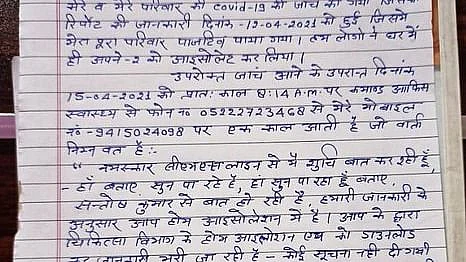 मेरे व मेरे परिवार की Covid-19 की जांच की गयी जिसकी
रिपोर्ट की जानकारी दिनांक -12-04-2021 को हुई जिसमें
मेरा पूरा परिवार पाजटिव पाया गया। हम लोगों ने घर में
ही अपने-2 को आइसोलेट कर लिया।
उपरोक्त जांच आने के उपरान्त दिनांक
15-04-2021 को प्रातः काल 8:14 A.m. पर कमाण्ड आफिस
स्वास्थ्य से फोन न० 05222723468 से मेरे मोबाइल
न० -9415024098 पर एक काल आती है जो वार्ता
निम्न वत है:-
" नमस्कार सीएमएस लाइन से मैं शुचि बात कर रही हूँ,
- हाँ बताए, सुन पा रहे है, हां सुन पा रहा हूँ बताए,
सन्तोष कुमार से बात हो रही है, हमारी जानकारी के
अनुसार आप होम आइसोलेशन में है। आप के द्वारा
चिकित्सा विभाग के होम आइसोलेशन एप्प को डाउनलोड
जानकारी भरी जा रही है - कोई सूचना नही दी गयी